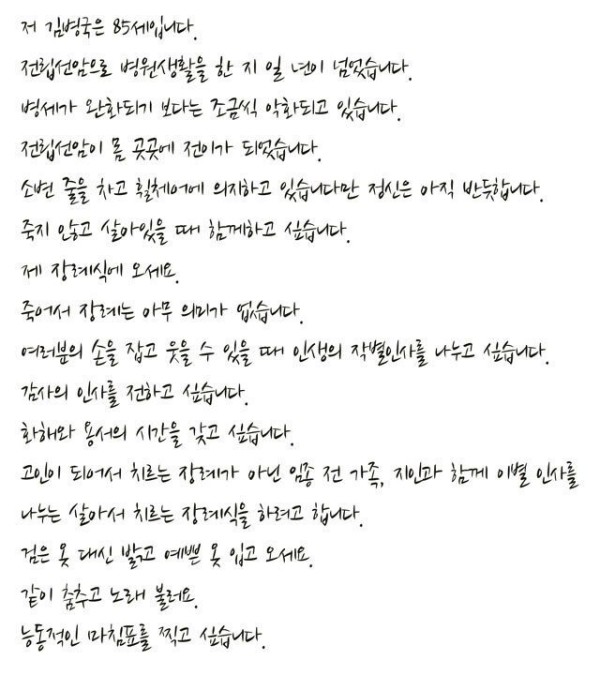 저 김병국은 85세입니다.
전립선암으로 병원생활을 한 지 일 년이 넘었습니다.
병세가 완화되기 보다는 조금씩 악화되고 있습니다.
전립선암이 몸 곳곳에 전이가 되었습니다.
소변 줄을 차고 휠체어에 의지하고 있습니다만 정신은 아직 반듯합니다.
죽지 않고 살아있을 때 함께하고 싶습니다.
제 장례식에 오세요.
죽어서 장례는 아무 의미가 없습니다.
여러분의 손을 잡고 웃을 수 있을 때 인생의 작별인사를 나누고 싶습니다.
감사의 인사를 전하고 싶습니다.
화해와 용서의 시간을 갖고 싶습니다.
고인이 되어서 치르는 장례가 아닌 임종 전 가족, 지인과 함께 이별 인사를
나누는 살아서 치르는 장례식을 하려고 합니다.
검은 옷 대신 밝고 예쁜 옷 입고 오세요.
같이 춤추고 노래 불러요.
능동적인 마침표를 찍고 싶습니다.